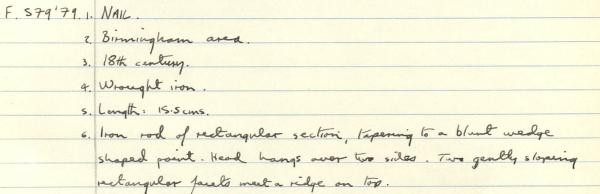 F. S79'79. 1. NAIL.
2. Birmingham area.
3. 18th century.
4. Wrought iron.
5. Length: 15.5cms.
6. Iron rod of rectangular section, tapering to a blunt wedge
shaped point. Head hangs over two sides. Two gently sloping
rectangular facets meet a ridge on top.